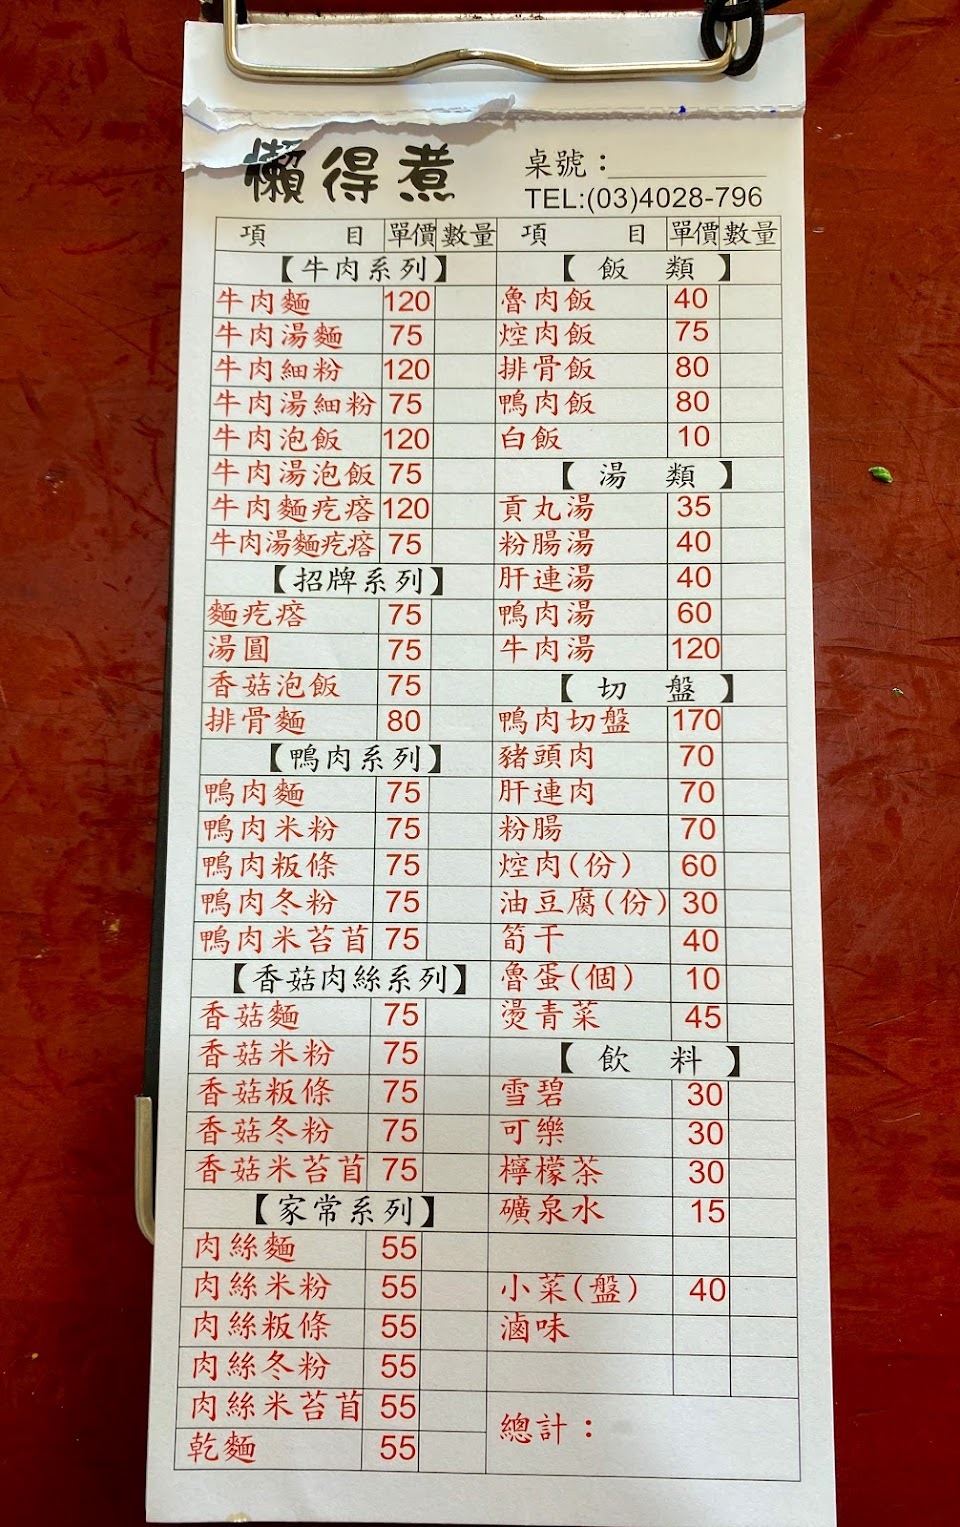 懶得煮
桌號：
TEL:(03)4028-796
項 目 單價 數量
【牛肉系列】
牛肉麵 120
牛肉湯麵 75
牛肉細粉 120
牛肉湯細粉 75
牛肉泡飯 120
牛肉湯泡飯 75
牛肉麵疙瘩 120
牛肉湯麵疙瘩 75
【招牌系列】
麵疙瘩 75
湯圓 75
香菇泡飯 75
排骨麵 80
【鴨肉系列】
鴨肉麵 75
鴨肉米粉 75
鴨肉粄條 75
鴨肉冬粉 75
鴨肉米苔苜 75
【香菇肉絲系列】
香菇麵 75
香菇米粉 75
香菇粄條 75
香菇冬粉 75
香菇米苔苜 75
【家常系列】
肉絲麵 55
肉絲米粉 55
肉絲粄條 55
肉絲冬粉 55
肉絲米苔苜 55
乾麵 55
項 目 單價 數量
【飯 類】
魯肉飯 40
焢肉飯 75
排骨飯 80
鴨肉飯 80
白飯 10
【湯 類】
貢丸湯 35
粉腸湯 40
肝連湯 40
鴨肉湯 60
牛肉湯 120
【切 盤】
鴨肉切盤 170
豬頭肉 70
肝連肉 70
粉腸 70
焢肉(份) 60
油豆腐(份) 30
筍干 40
魯蛋(個) 10
燙青菜 45
【飲 料】
雪碧 30
可樂 30
檸檬茶 30
礦泉水 15
小菜(盤) 40
滷味
總計：